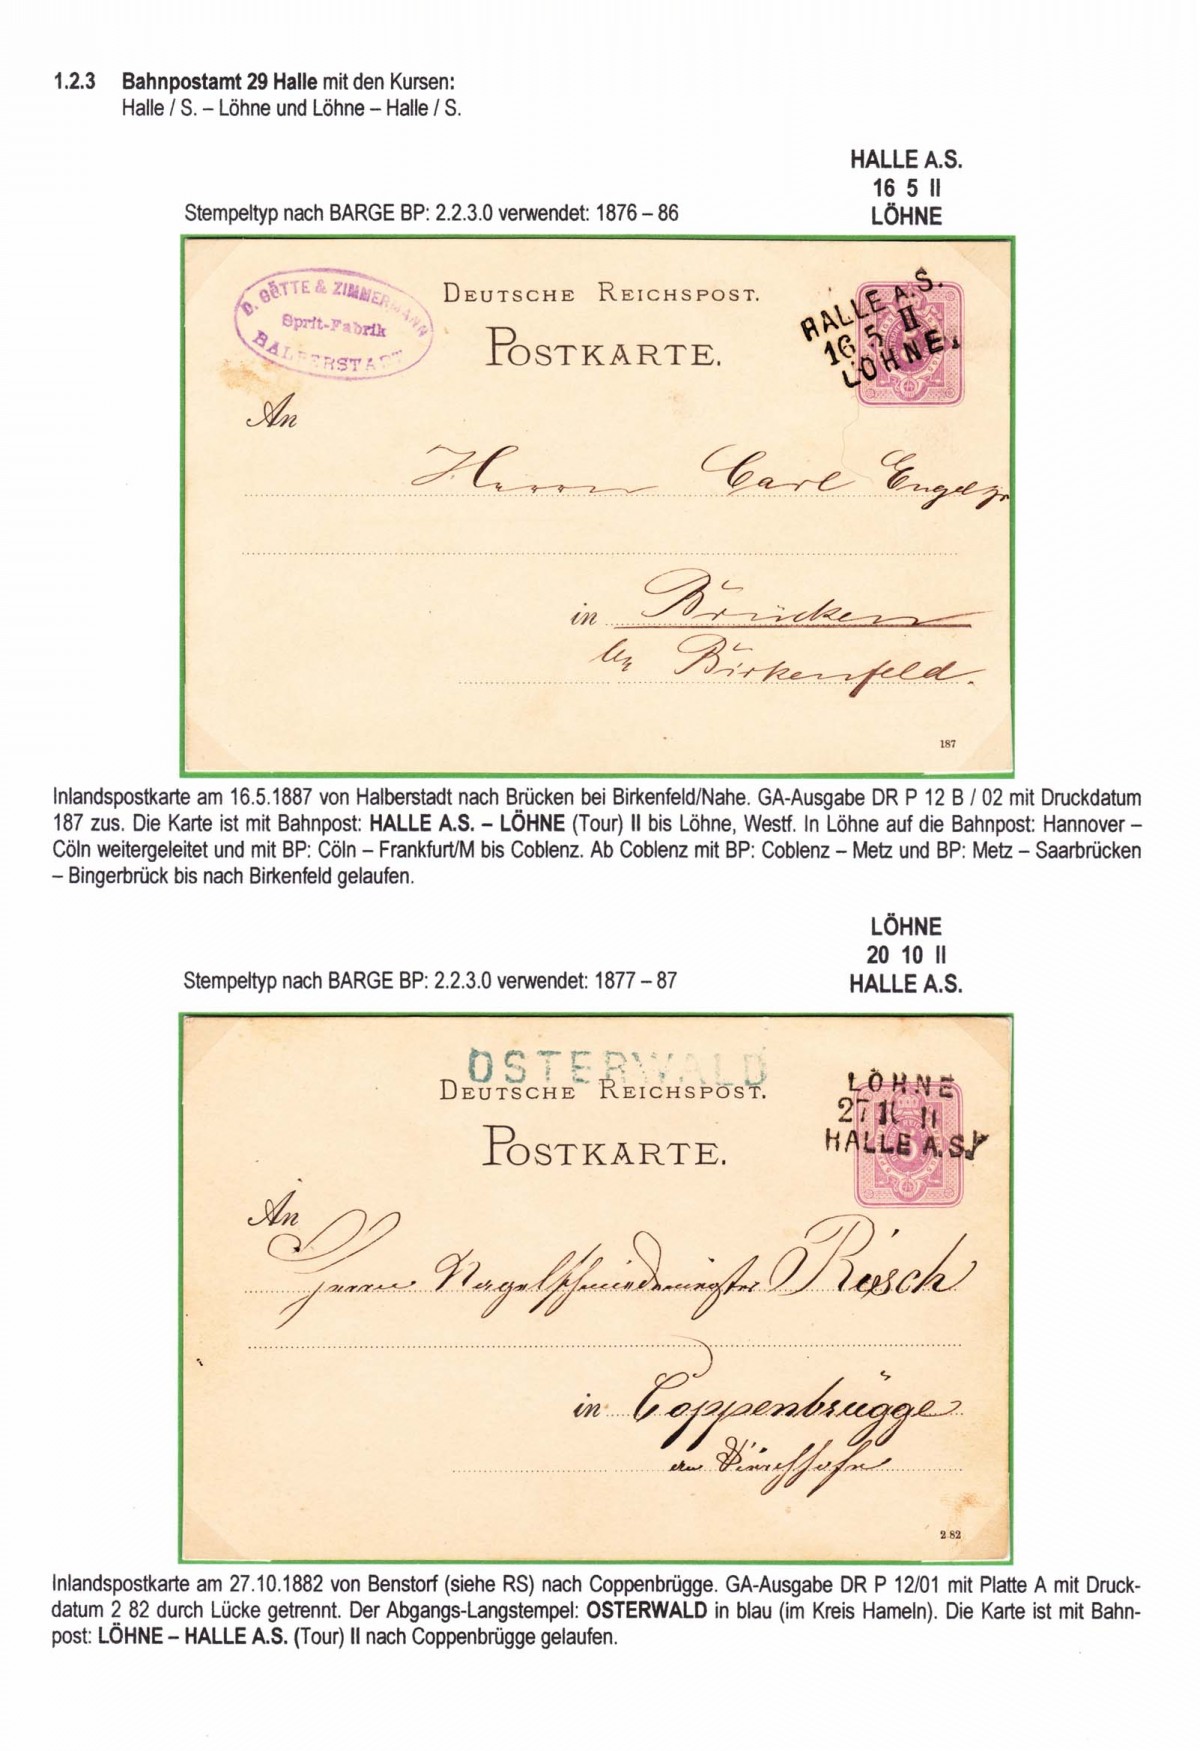 1.2.3 Bahnpostamt 29 Halle mit den Kursen:
Halle / S. – Löhne und Löhne – Halle / S.
HALLE A.S.
16 5 II
LÖHNE
Stempeltyp nach BARGE BP: 2.2.3.0 verwendet: 1876 – 86
D. GÖTTE & ZIMMERMANN
Sprit-Fabrik
HALBERSTADT
DEUTSCHE REICHSPOST.
POSTKARTE.
HALLE A.S.
16 5 II
LÖHNE.
An
Herrn Carl Engel
in Brücken
bei Birkenfeld.
187
Inlandspostkarte am 16.5.1887 von Halberstadt nach Brücken bei Birkenfeld/Nahe. GA-Ausgabe DR P 12 B / 02 mit Druckdatum
187 zus. Die Karte ist mit Bahnpost: HALLE A.S. – LÖHNE (Tour) II bis Löhne, Westf. In Löhne auf die Bahnpost: Hannover –
Cöln weitergeleitet und mit BP: Cöln – Frankfurt/M bis Coblenz. Ab Coblenz mit BP: Coblenz – Metz und BP: Metz – Saarbrücken
– Bingerbrück bis nach Birkenfeld gelaufen.
LÖHNE
20 10 II
HALLE A.S.
Stempeltyp nach BARGE BP: 2.2.3.0 verwendet: 1877 – 87
OSTERWALD
DEUTSCHE REICHSPOST.
POSTKARTE.
LÖHNE
27 10 II
HALLE A.S.
An
Herrn Nagelschmiedemeister Rösch
in Coppenbrügge
2 82
Inlandspostkarte am 27.10.1882 von Benstorf (siehe RS) nach Coppenbrügge. GA-Ausgabe DR P 12/01 mit Platte A mit Druck-
datum 2 82 durch Lücke getrennt. Der Abgangs-Langstempel: OSTERWALD in blau (im Kreis Hameln). Die Karte ist mit Bahn-
post: LÖHNE – HALLE A.S. (Tour) II nach Coppenbrügge gelaufen.